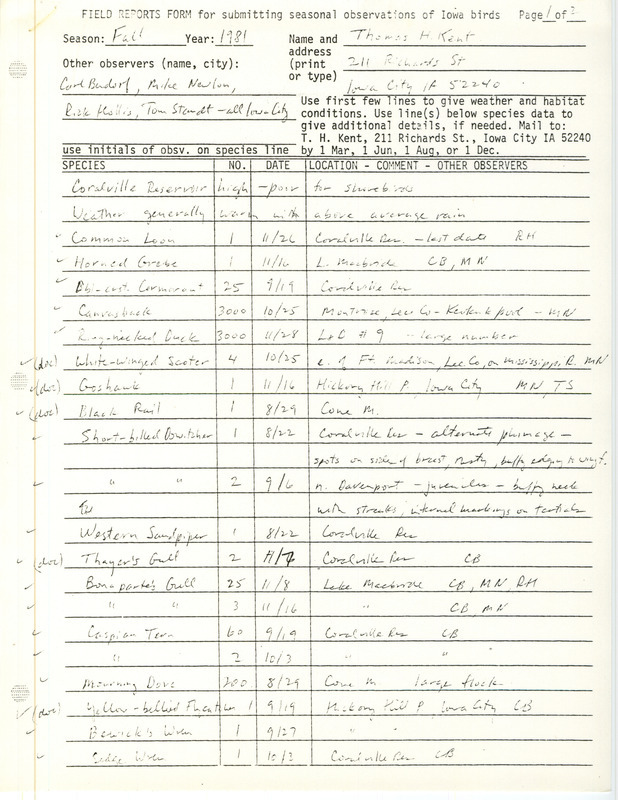 FIELD REPORTS FORM for submitting seasonal observations of Iowa birds Page 1 of
Season: Fall Year: 1981 Name and address (print or type) Thomas H. Kent
211 Richards St
Iowa City IA 52240
Other observers (name, city):
Carl Bendorf, Mike Newlon,
Rick Hollis, Tom Staudt - all Iowa City
use initials of obsv. on species line
Use first few lines to give weather and habitat
conditions. Use line(s) below species data to
give additional details, if needed. Mail to:
T. H. Kent, 211 Richards St., Iowa City IA 52240
by 1 Mar, 1 Jun, 1 Aug, or 1 Dec.
SPECIES NO. DATE LOCATION - COMMENT - OTHER OBSERVERS
Coralville Reservoir high - poor for shorebirds
Weather generally warm with above average rain
Common Loon 1 11/26 Coralville Res. - last date RH
Horned Grebe 1 11/16 L. Macbride CB, MN
Dbl-crst. Cormorant 25 9/19 Coralville Res
Canvasback 3000 10/25 Montrose, Lee Co - Keokuk pool - MN
Ring-necked Duck 3000 11/28 L&D # 9 - large number
(doc) White-winged Scoter 4 10/25 e. of Ft. Madison, Lee Co, on Mississippi R. MN
(doc) Goshawk 1 11/16 Hickory Hill P. Iowa City MN, TS
(doc) Black Rail 1 8/29 Cone M.
Short-billed Dowitcher 1 8/22 Coralville Res - alternate plumage -
spots on side of breast, rusty, buffy edging to wing f.
" " 2 9/6 n. Davenport - juveniles - buffy neck
with streaks, internal markings on tertials
Western Sandpiper 1 8/22 Coralville Res
(doc) Thayer's Gull 2 Coralville Res CB
Bonaparte's Gull 25 11/8 Lake Macbride CB, MN, RH
" " 3 11/16 " CB, MN
Caspian Tern 60 9/19 Coralville Res CB
" 2 10/3 " "
Mourning Dove 200 8/29 Cone M. large flock
(doc) Yellow-bellied Flycatcher 1 9/19 Hickory Hill P Iowa City CB
Bewick's Wren 1 9/27 " "
Sedge Wren 1 10/2 Coralville Res CB